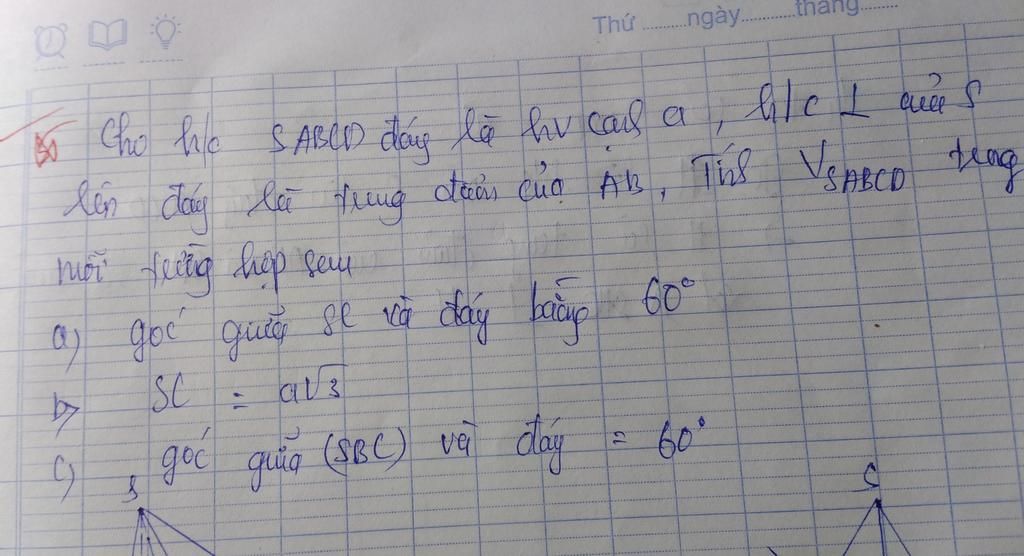 Thứ ........ngày............tháng........
Bài Cho h/c SABCD đáy là hv cạnh a, h/c ⊥ của S
lên đáy là trung điểm của AB, Tính V_SABCD trong
mỗi trường hợp sau
a) góc giữa SC và đáy bằng 60°
b) SC = a√3
c) góc giữa (SBC) và đáy = 60°
S S